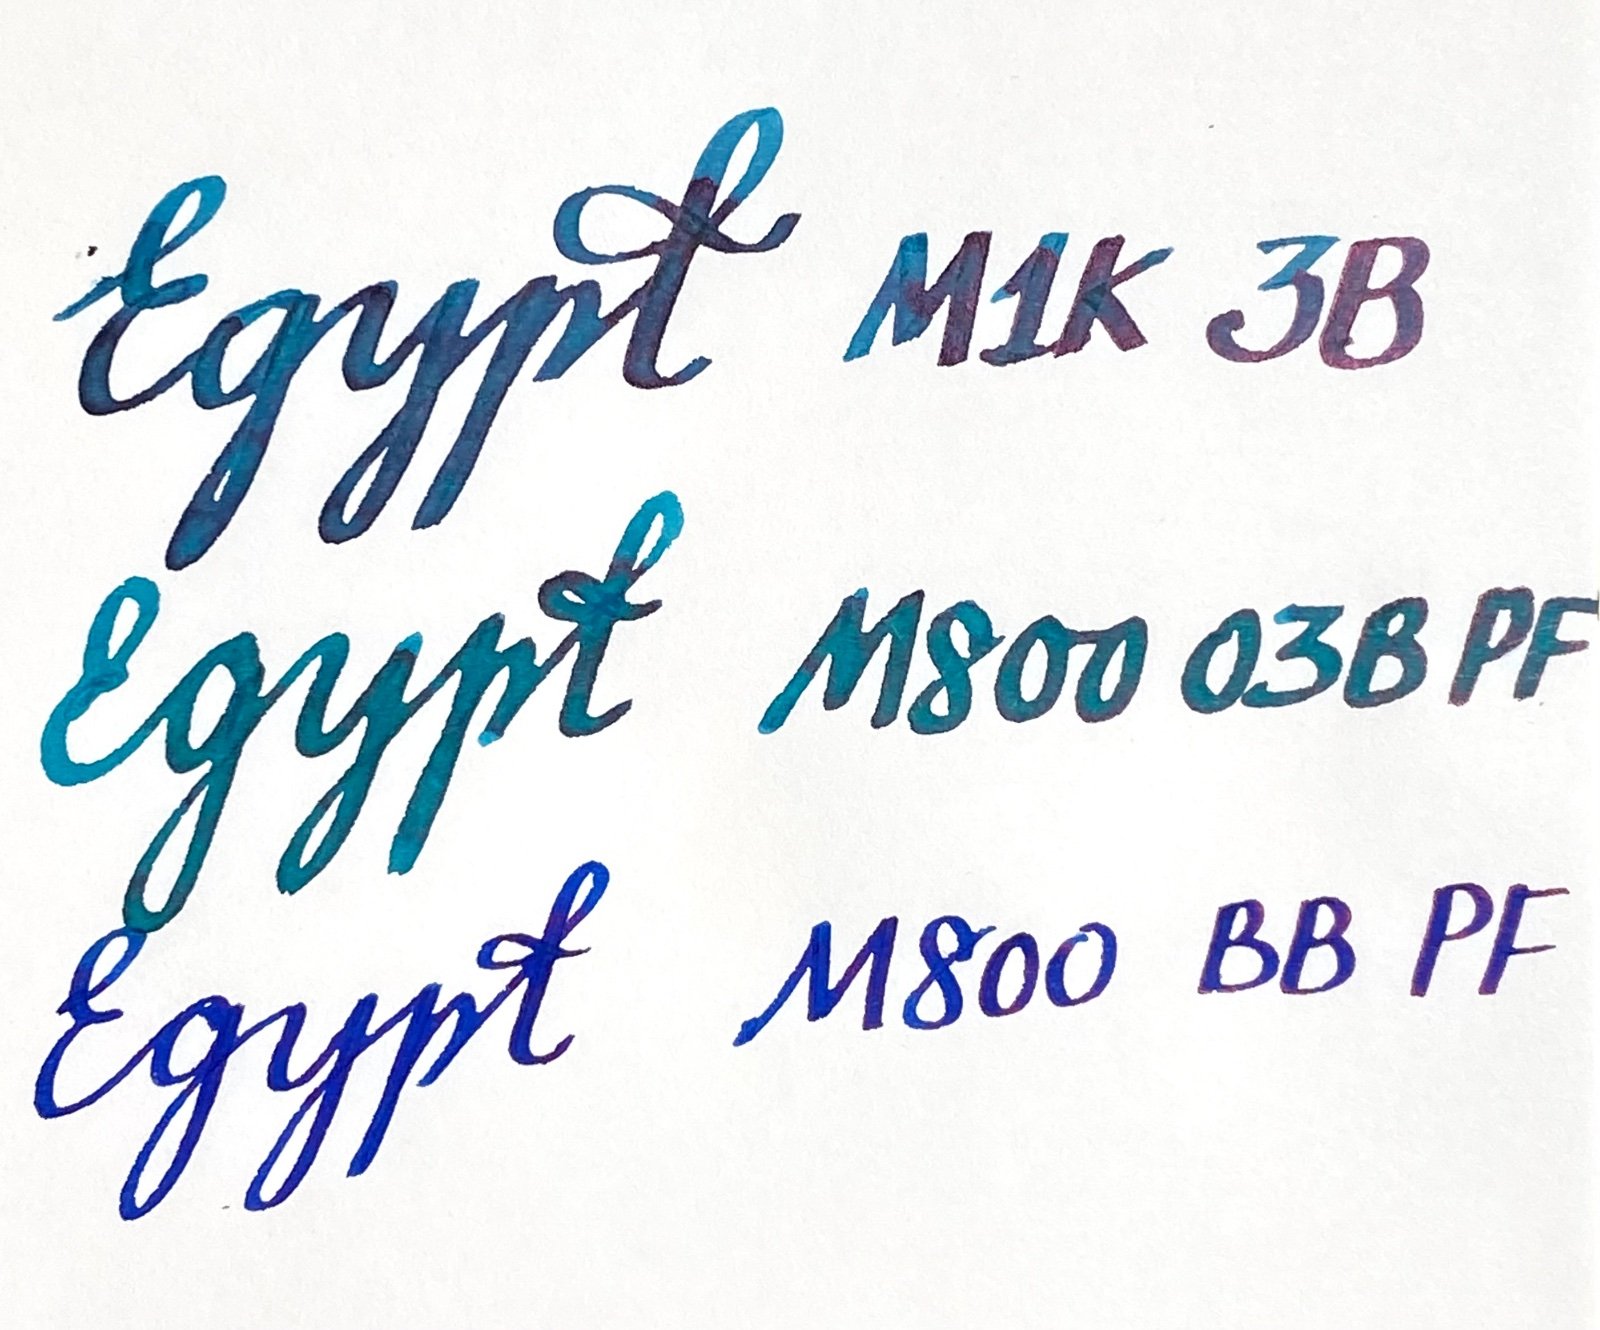 Egypt M1K 3B
Egypt M800 03B PF
Egypt M800 BB PF